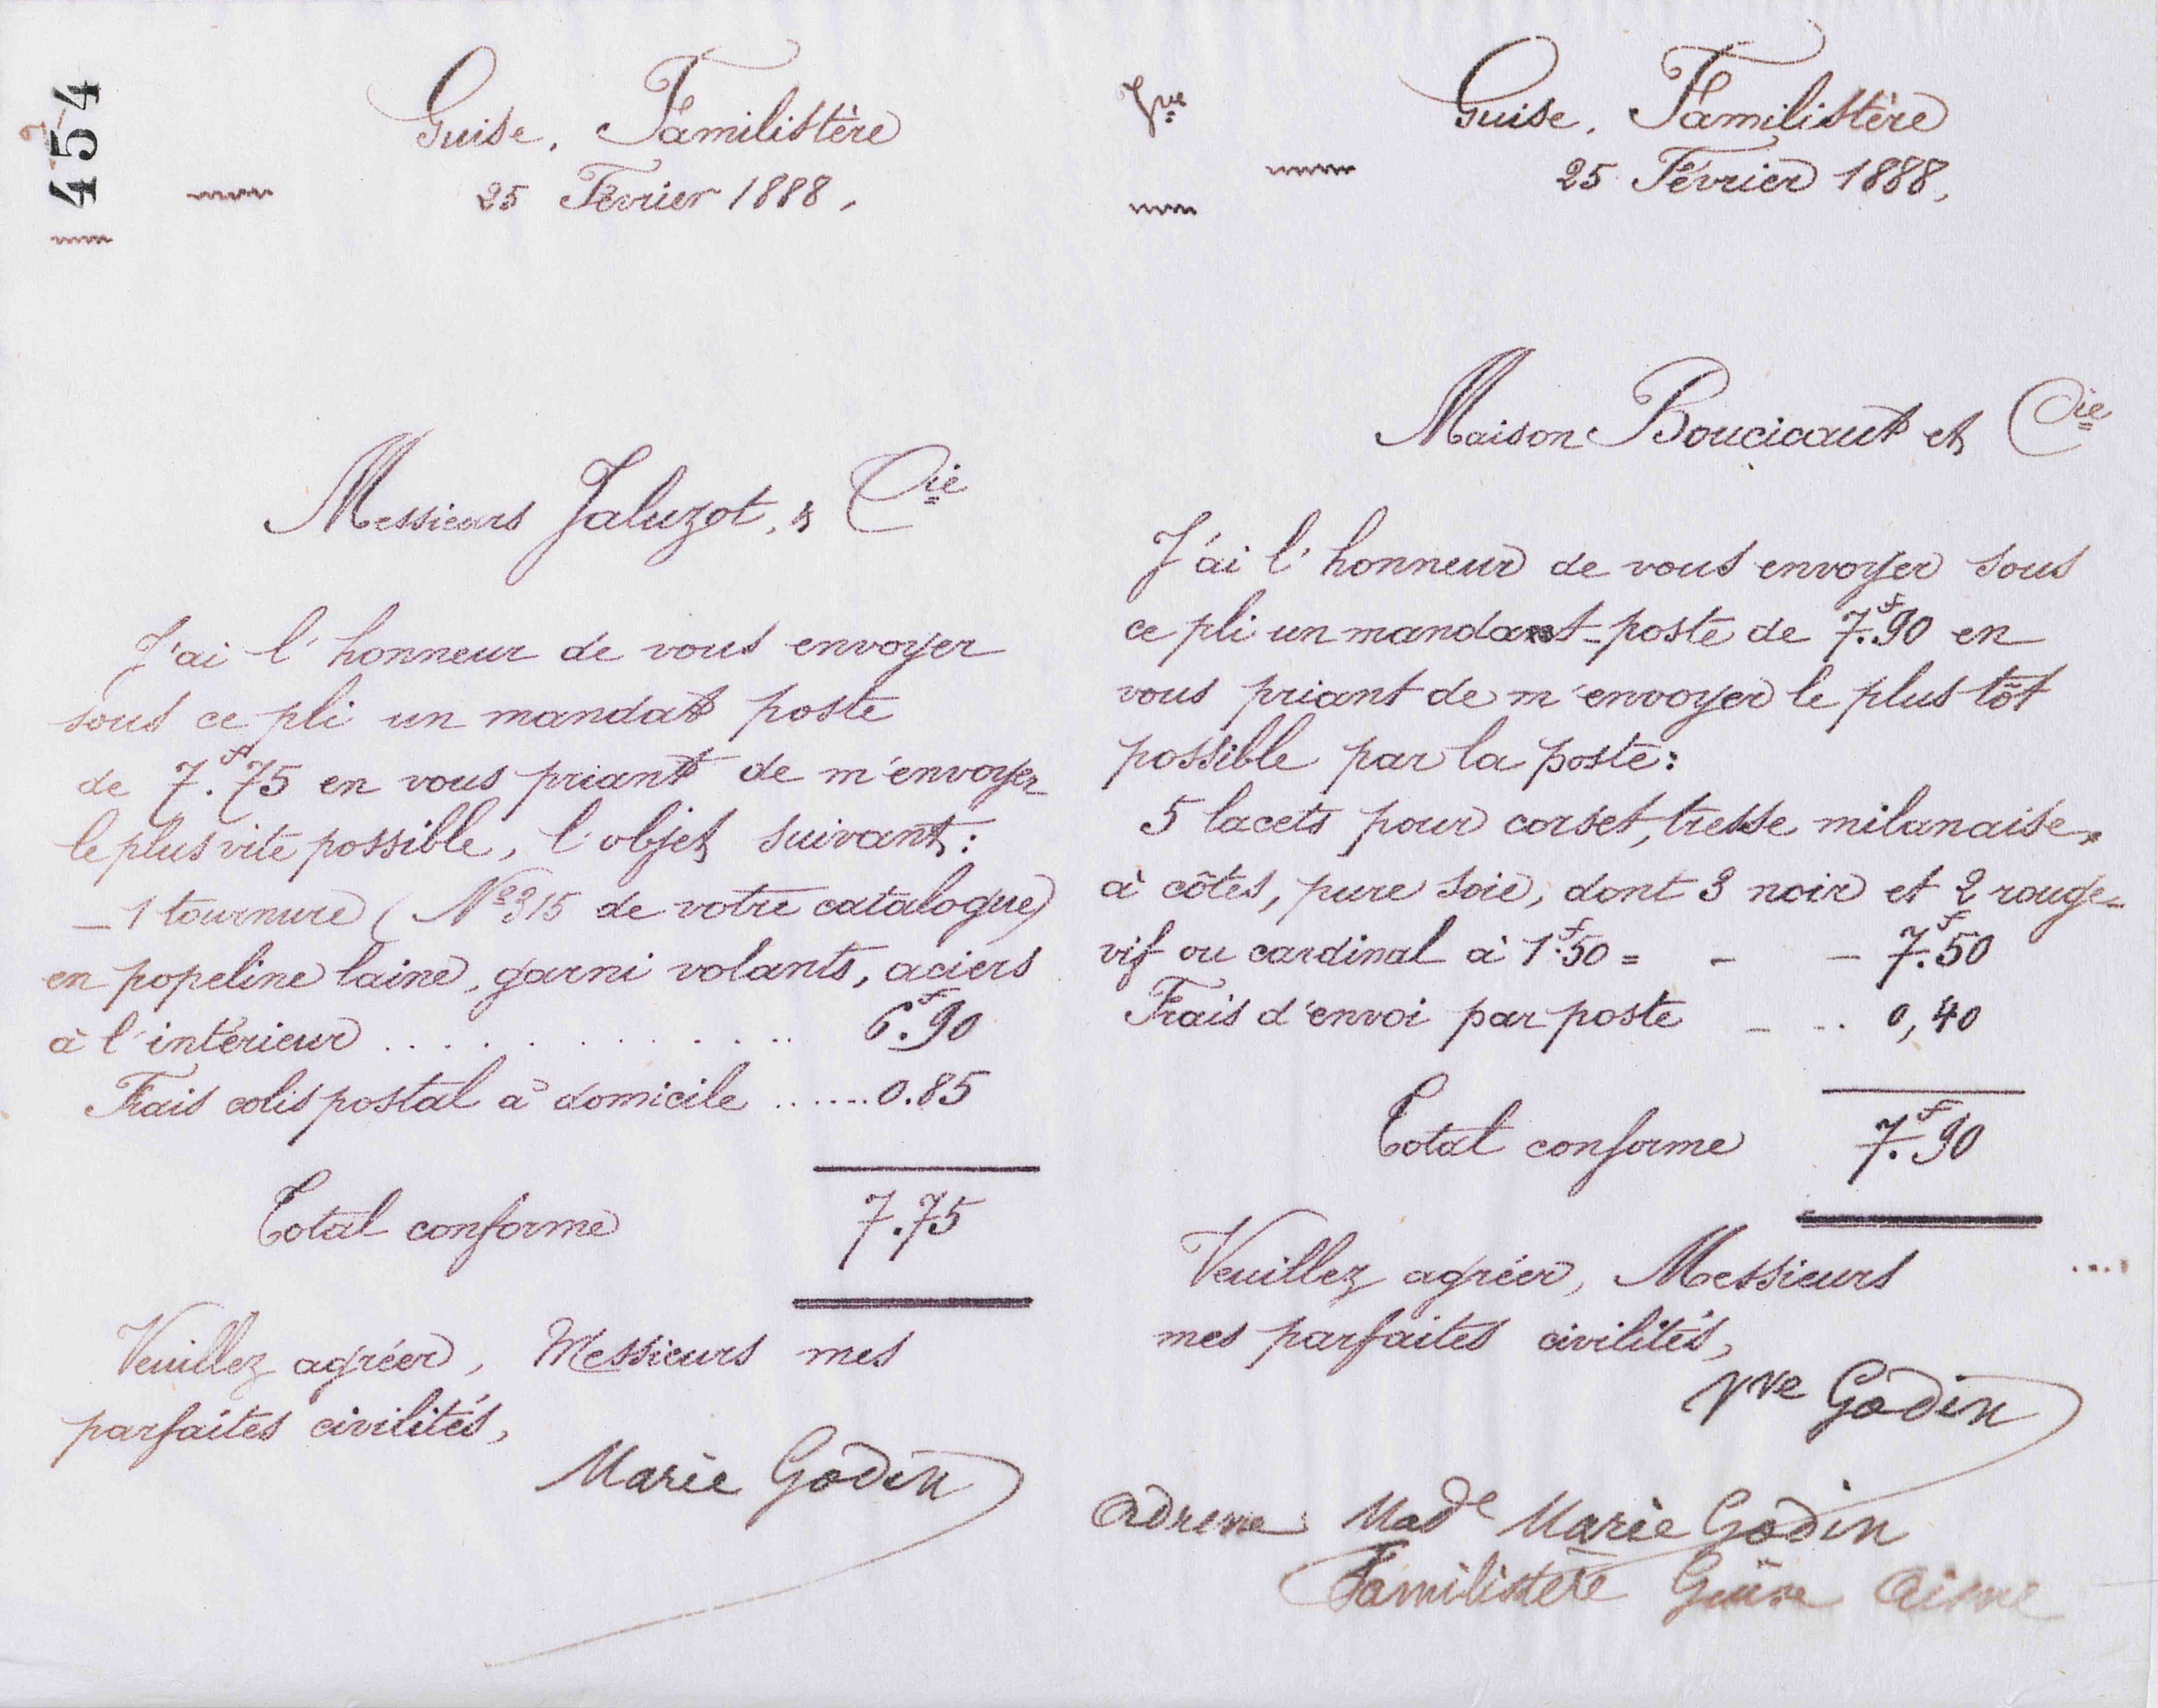 454
Guise. Familistère
25 Février 1888.
Messieurs Jaluzot, & Cie
J'ai l'honneur de vous envoyer
sous ce pli un mandat poste
de 7.f75 en vous priant de m'envoyer
le plus vite possible, l'objet suivant :
_ 1 tournure (No 315 de votre catalogue)
en popeline laine, garni volants, aciers
à l'intérieur ............... 6.f90
Frais colis postal à domicile ....... 0.85
Total conforme 7.75
Veuillez agréer, Messieurs mes
parfaites civilités,
Marie Godin
Guise. Familistère
25 Février 1888,
Maison Boucicaut et Cie
J'ai l'honneur de vous envoyer sous
ce pli un mandat-poste de 7.f90 en
vous priant de m'envoyer le plus tôt
possible par la poste :
5 lacets pour corset, tresse milanaise,
à côtes, pure soie, dont 3 noir et 2 rouge-
vif ou cardinal à 1.f50 = - - 7.f50
Frais d'envoi par poste - - .. 0,40
Total conforme 7.f90
Veuillez agréer, Messieurs
mes parfaites civilités,
Vve Godin
Adresse Made Marie Godin
Familistère Guise Aisne